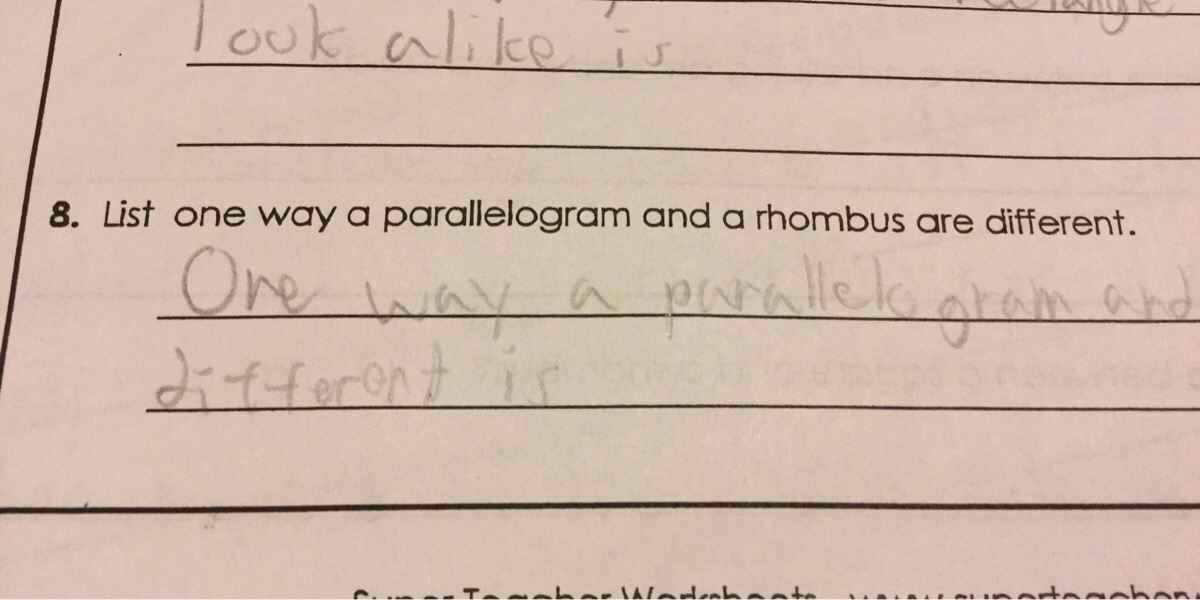 look alike is
8. List one way a parallelogram and a rhombus are different.
One way a parallelogram and
different is
Super Teacher Worksheets